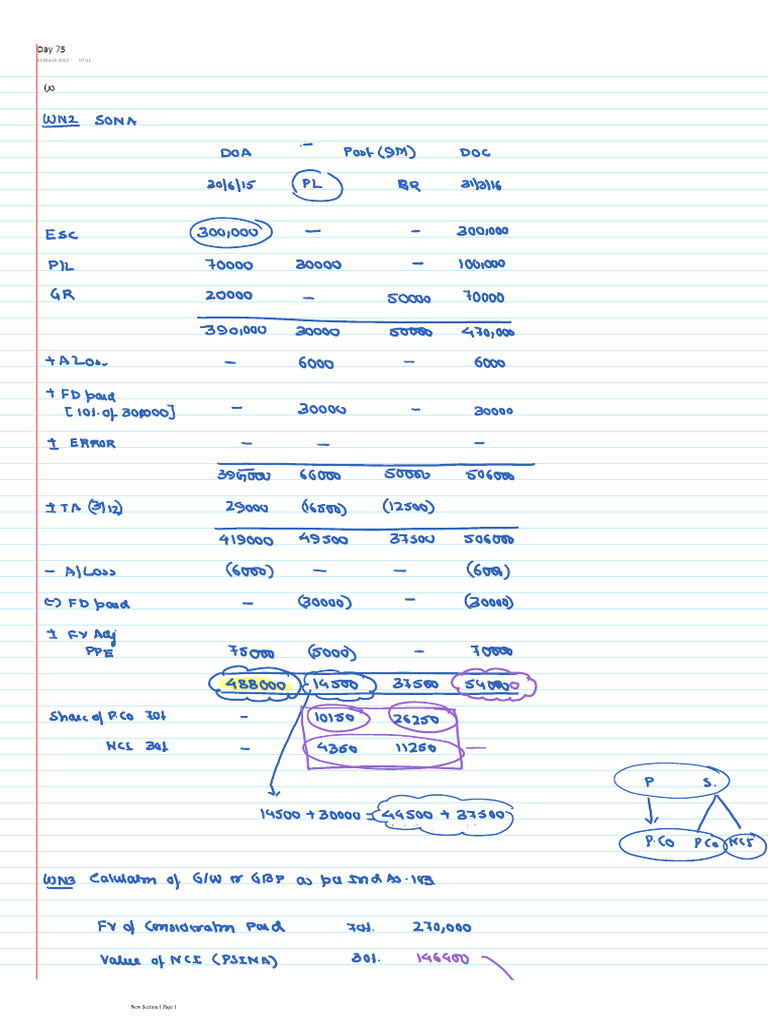 Day 75
03 March 2022 07:21
W
WN2 SONA
DOA Post (9M) DOC
30/6/15 PL GR 31/3/16
ESC 300,000 — - 300,000
P/L 70000 30000 - 100,000
GR 20000 - 50000 70000
390,000 30000 50000 470,000
+ A Loss - 6000 - 6000
+ FD paid
[10% of 300,000] - 30000 - 30000
± ERROR - - -
390000 66000 50000 506000
± TA (3/12) 29000 (16500) (12500)
419000 49500 37500 506000
- A/Loss (6000) - - (6000)
(-) FD paid - (30000) - (30000)
± FV Adj
PPE 75000 (5000) - 70000
488000 14500 37500 540000
Share of P.Co 70% - 10150 26250
NCI 30% - 4350 11250
P S.
14500 + 30000 = 44500 + 37500
P.Co P Co NCI
WN3 Calculation of G/W or GBP as per Ind As-103
FV of Consideration Paid 70% 270,000
Value of NCI (PSINA) 30% 146400
New Section 1 Page 1